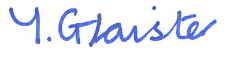 Y. Glaister